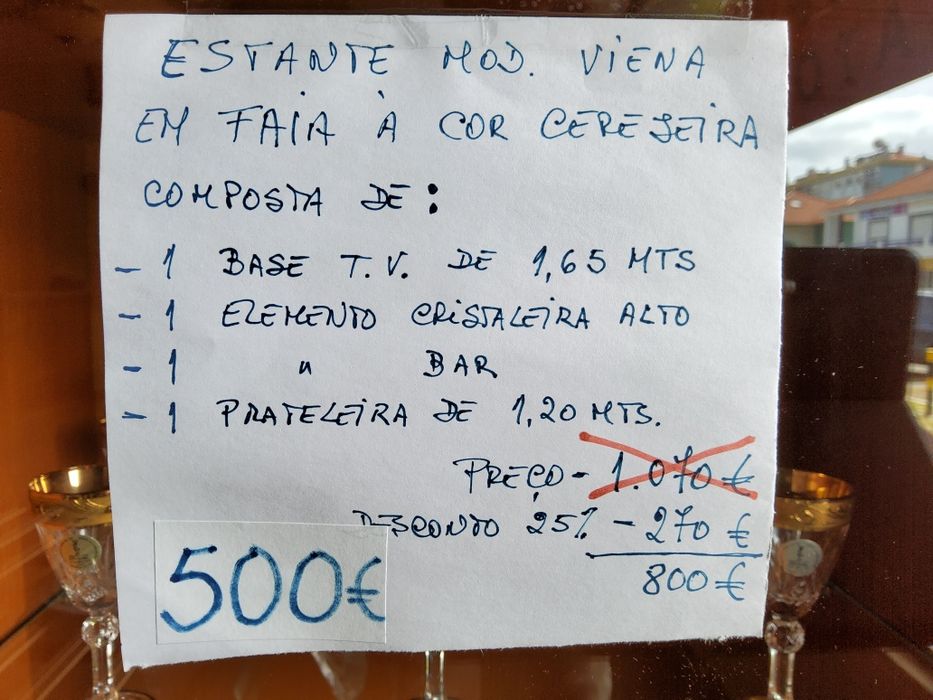 ESTANTE MOD. VIENA
EM FAIA À COR CEREJEIRA
COMPOSTA DE:
- 1 BASE T.V. DE 1,65 MTS
- 1 ELEMENTO CRISTALEIRA ALTO
- 1 " BAR
- 1 PRATELEIRA DE 1,20 MTS.
PREÇO - 1.070 €
DESCONTO 25% - 270 €
800 €
500€